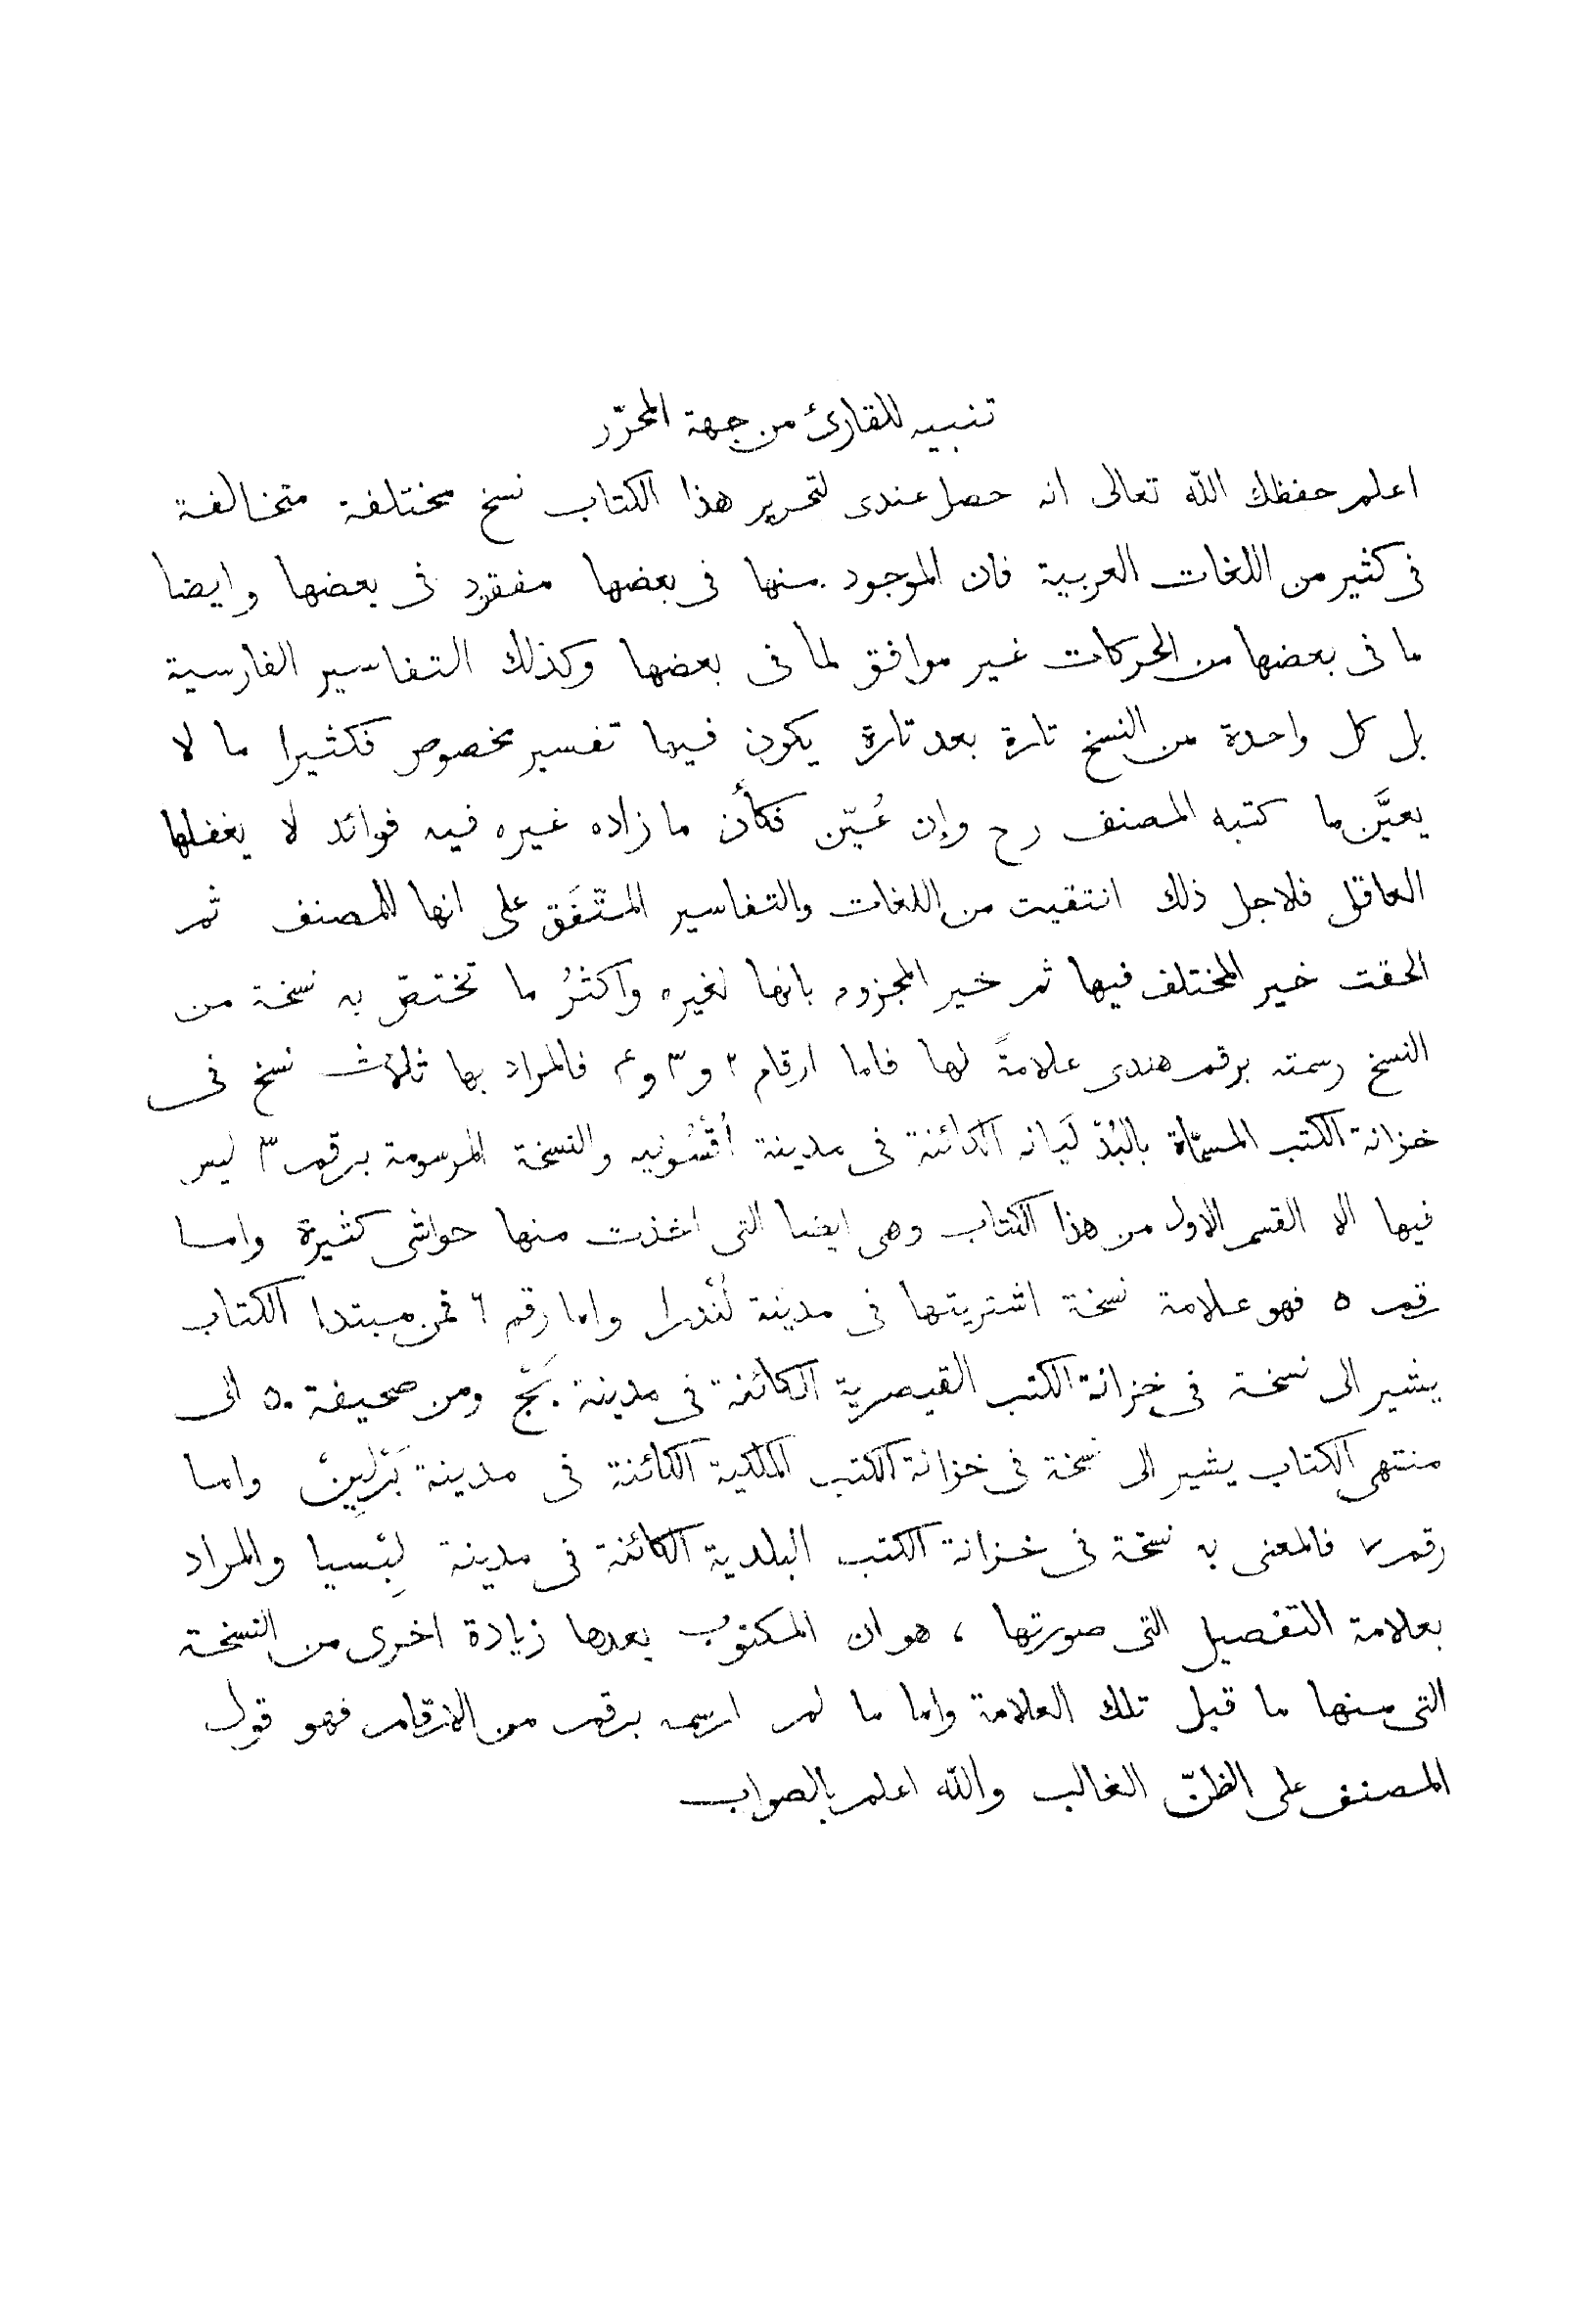 تنبيه للقارئ من جهة المحرّر
اعلم حفظك الله تعالى انه حصل عندى لتحرير هذا الكتاب نسخ مختلفة متخالفة
فى كثير من اللغات العربية فان الموجود منها فى بعضها مفقود فى بعضها وايضا
ما فى بعضها من الحركات غير موافق لما فى بعضها وكذلك التفاسير الفارسية
بل كل واحدة من النسخ تارة بعد تارة يكون فيها تفسير مخصوص فكثيرا ما لا
يعيَّن ما كتبه المصنف رح وإن عُيّن فكأن ما زاده غيره فيه فوائد لا يغفلها
العاقل فلاجل ذلك انتقيت من اللغات والتفاسير المتّفَق على انها للمصنف ثم
الحقت خير المختلف فيها ثم خير المجزوم بانها لغيره واكثرُ ما تختصّ به نسخة من
النسخ رسمته برقم هندى علامةً لها فاما ارقام ٢ و ٣ و ۴ فالمراد بها ثلاث نسخ فى
خزانة الكتب المسمّاة بالبُدّ لَيانه الكائنة فى مدينة اُقْسُونيه والنسخة المرسومة برقم ٣ ليس
فيها الا القسم الاول من هذا الكتاب وهى ايضا التى اخذت منها حواشى كثيرة واما
رقم ٥ فهو علامة نسخة اشتريتها فى مدينة لُنْدرا واما رقم ٦ فمن مبتدا الكتاب
يشير الى نسخة فى خزانة الكتب القيصرية الكائنة فى مدينة بَجْ ومن صحيفة ٥٠ الى
منتهى الكتاب يشير الى نسخة فى خزانة الكتب الملكية الكائنة فى مدينة بَرْلِينْ واما
رقم ٧ فالمعنى به نسخة فى خزانة الكتب البلدية الكائنة فى مدينة لِبْسيا والمراد
بعلامة التفصيل التى صورتها ، هو ان المكتوب بعدها زيادة اخرى من النسخة
التى منها ما قبل تلك العلامة واما ما لم ارسمه برقم من الارقام فهو قول
المصنف على الظنّ الغالب والله اعلم بالصواب